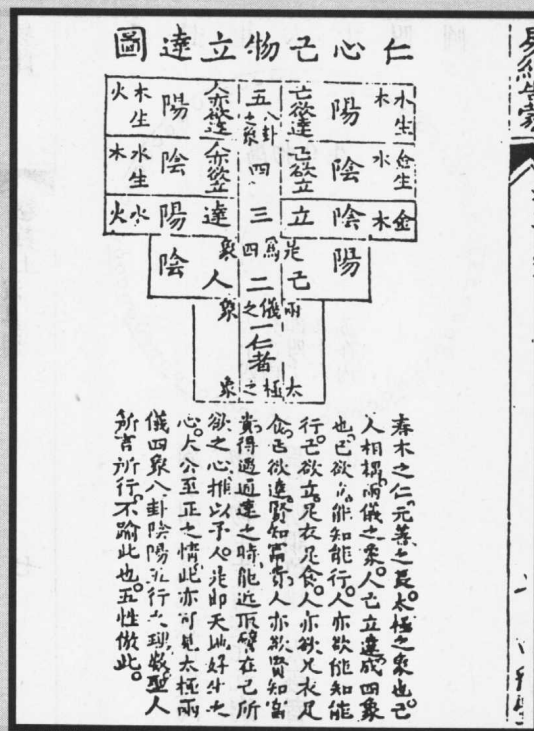 易經告蒙
仁心己物立達圖
水生木 陽 己欲達 五 八卦之象 人亦欲達 陽 木生火
金生水 陰 己欲立 四 人亦欲立 陰 水生木
金木 陰 立 三 達 陽 水火
是為四象
陽 己 二 人 陰
兩儀之象
一仁者
太極之象
春木之仁。元善之長。太極之象也。己
人相揭兩儀之象。人己立達成四象
也。己欲立。能知能行。人亦欲能知能
行。己欲立。足衣足食。人亦欲足衣足
食。己欲達。賢知富貴。人亦欲賢知富
貴。得遇通達之時。能近取譬。在己所
欲之心推以予人。是即天地好生之
心。大公至正之情。此亦可見太極兩
儀四象八卦陰陽五行之理數。聖人
所言所行。不踰此也。五性倣此。